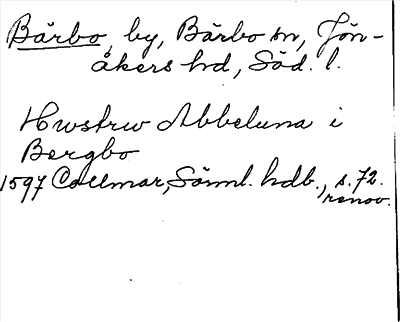 Bärbo, by, Bärbo sn, Jön-
åkers hd, Söd. l.
Hwstrw Abbeluna i
Bergbo
1597 Collmar, Sörml. hdb., s. 72.
renov.